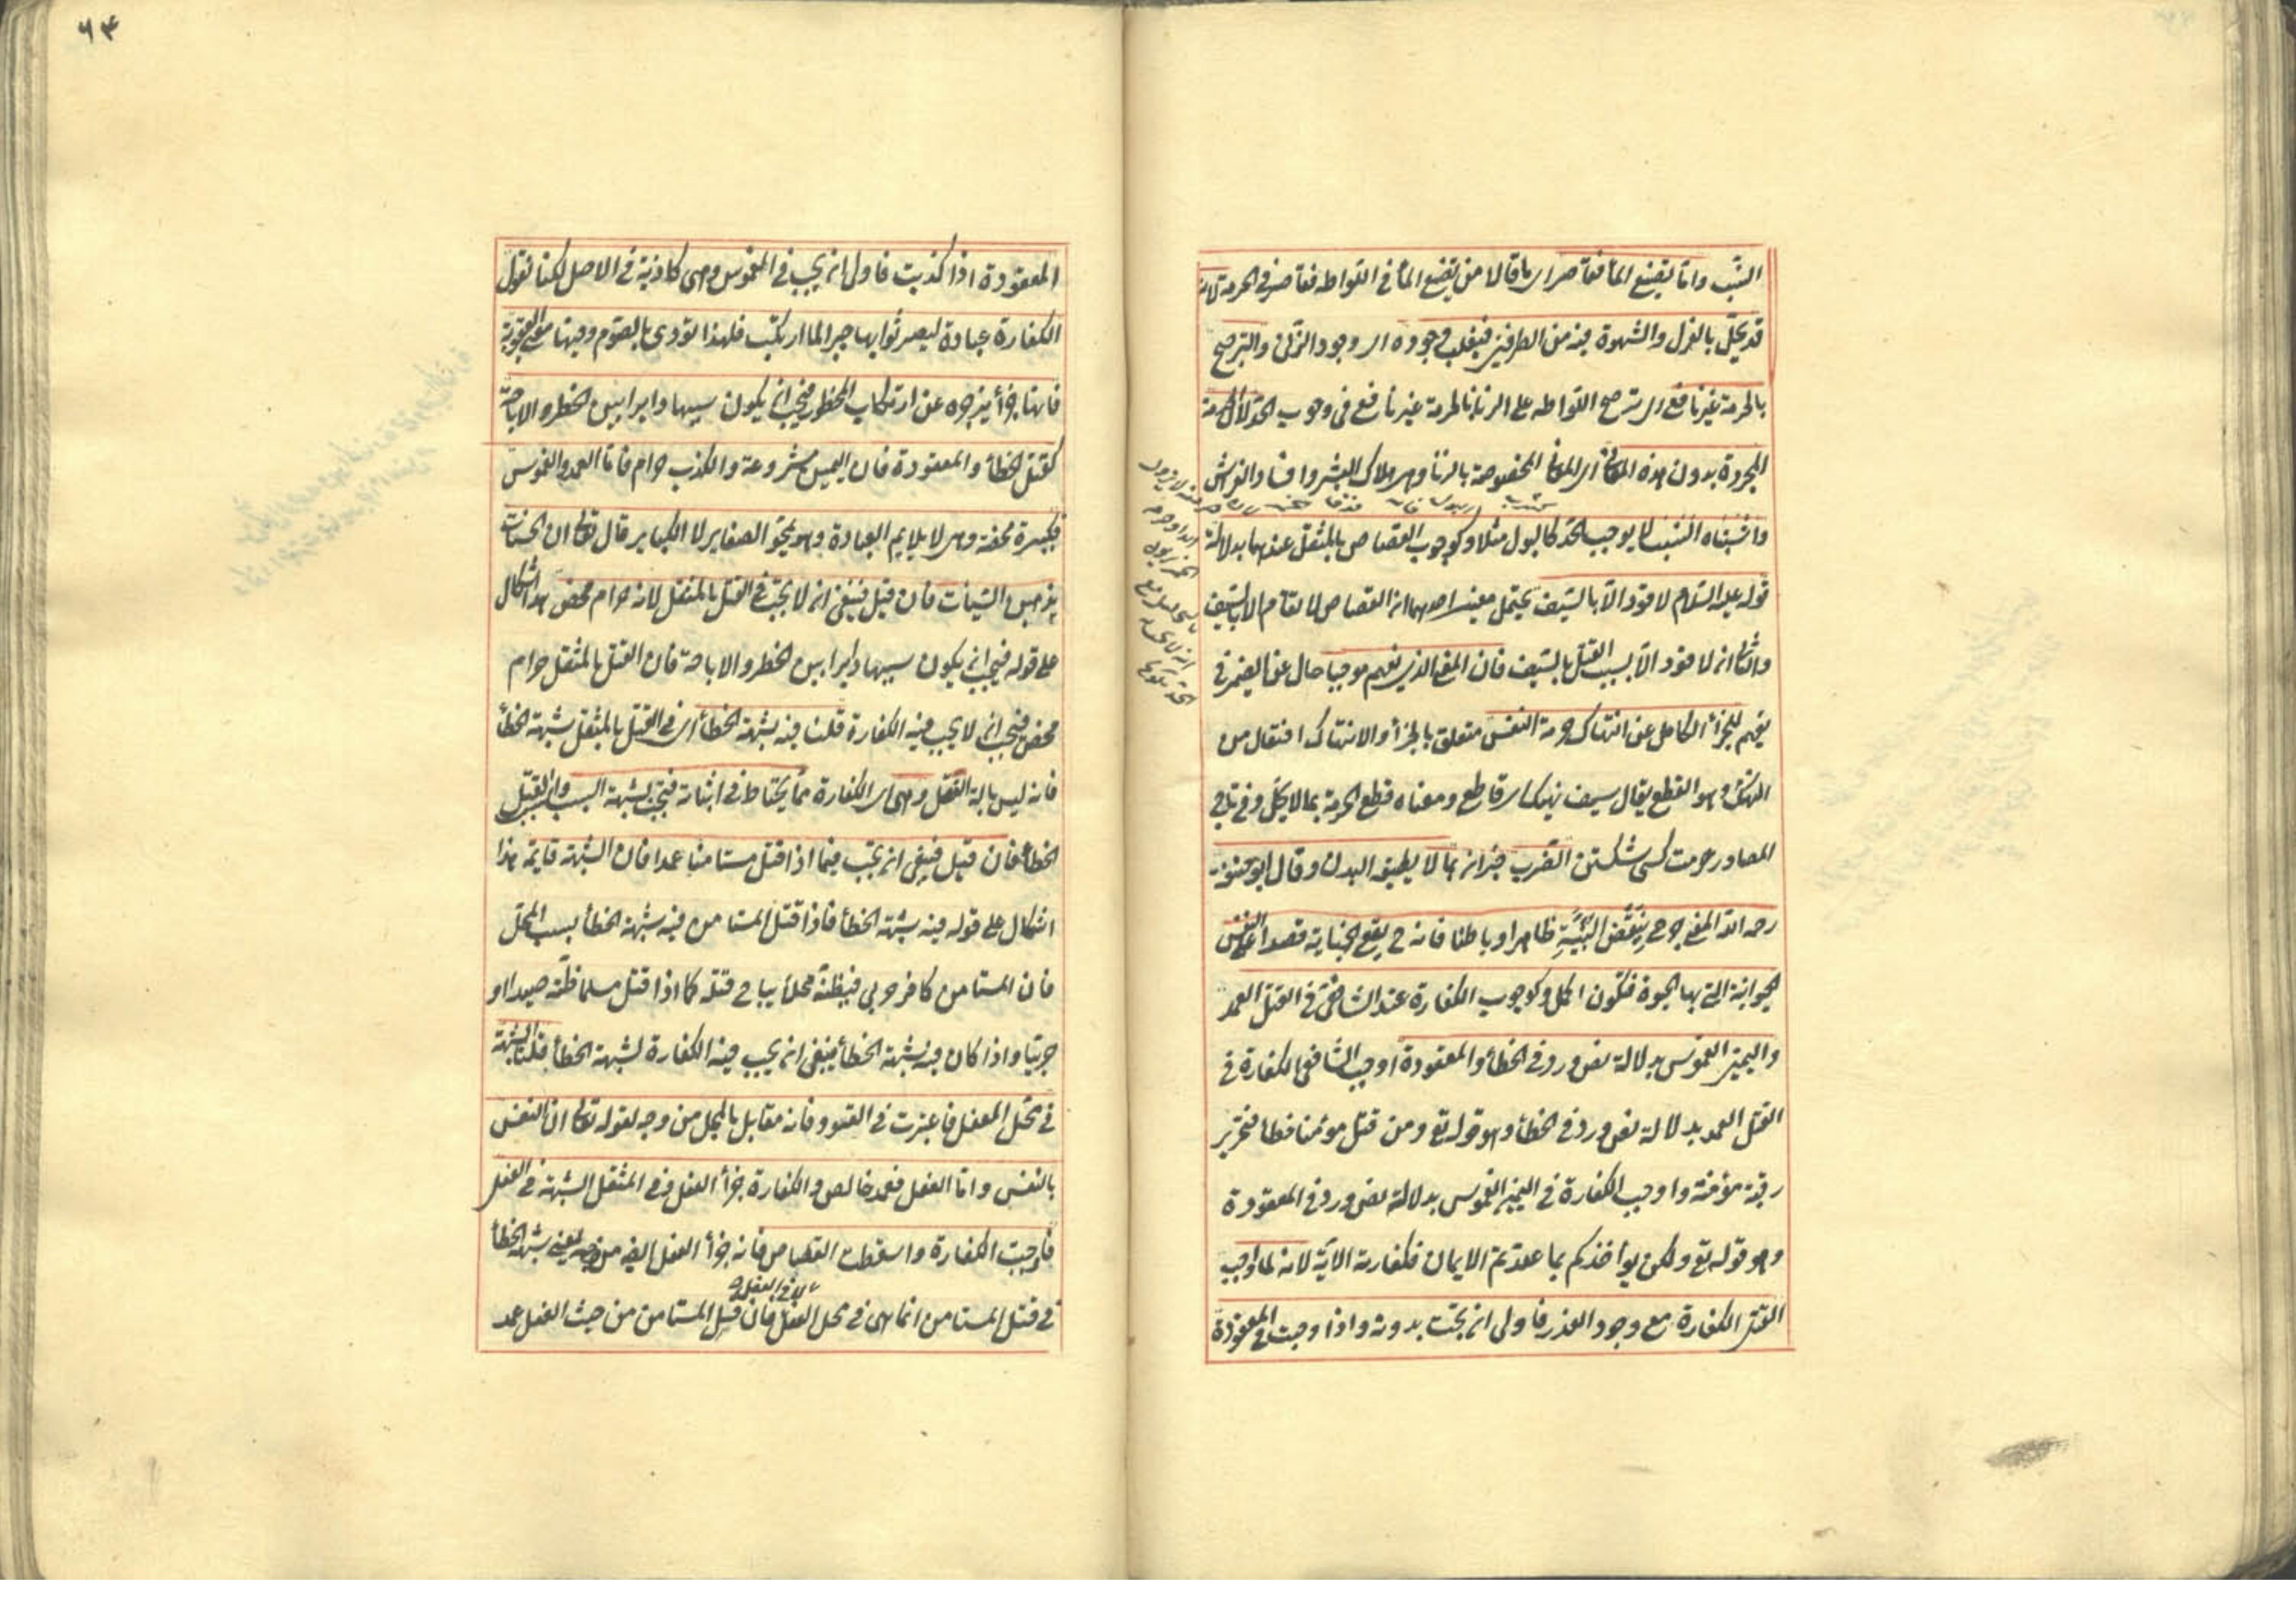 النسب واما تضييع الماء فقاصر اى ما قالا من تضييع الماء فى اللواطة فقاصر فى الحرمة لانه
قد يحل بالعزل والشهوة فيه من الطرفين فيغلب وجوده اى وجود الزنى والترجيح
بالحرمة غير نافع اى ترجيح اللواطة على الزنا بالحرمة غير نافع فى وجوب الحد لان الحرمة
المجردة بدون هذه المعانى اى المعانى المخصوصة بالزنا وهى هلاك البشر وافساد الفراش
واشتباه النسب لا يوجب الحد كالبول مثلا وكوجوب القصاص بالمثقل عندهما بدلالة
قوله عليه السلام لا قود الا بالسيف يحتمل معنيين احدهما ان القصاص لا يقام الا بالسيف
والثانى انه لا قود الا بسبب القتل بالسيف فان المعنى الذى يفهم موجبا حال عن الضمير فى
يفهم للجزاء الكامل عن انتهاك حرمة النفس متعلق بالجزاء والانتهاك افتعال من
النهك وهو القطع يقال سيف نهيك اى قاطع ومعناه قطع الحرمة بما لا يحل وفى تاج
المصادر حرمت كسى شكستن الضرب خبر ان بما لا يطيقه البدن وقال ابو حنيفة
رحمه الله المعنى جرح ينقض البنية ظاهرا وباطنا فانه ح يقع الجناية قصدا على النفس
الحيوانية التى بها الحيوة فتكون اكمل وكوجوب الكفارة عند الشافعى فى القتل العمد
واليمين الغموس بدلالة نص ورد فى الخطأ والمعقودة اوجب الشافعى الكفارة فى
القتل العمد بدلالة نص ورد فى الخطأ وهو قوله تع ومن قتل مؤمنا خطأ فتحرير
رقبة مؤمنة واوجب الكفارة فى اليمين الغموس بدلالة نص ورد فى المعقودة
وهو قوله تع ولكن يؤاخذكم بما عقدتم الايمان فكفارته الاية لانه لما اوجب
القتل الكفارة مع وجود العذر فاولى ان تجب بدونه واذا وجبت فى المعقودة
٩٣
المعقودة اذا كذبت فاولى ان يجب فى الغموس وهى كاذبة فى الاصل لكنا نقول
الكفارة عبادة ليصير ثوابها جبرا لما ارتكب فلهذا تؤدى بالصوم وفيها معنى العقوبة
فانها جزاء يزجره عن ارتكاب المحظور فيجب ان يكون سببها دايرا بين الحظر والاباحة
كقتل الخطأ والمعقودة فان اليمين مشروعة والكذب حرام فاما العمد والغموس
فكبيرة محضة وهى لا يلايم العبادة وهى تمحو الصغاير لا الكباير قال تعالى ان الحسنات
يذهبن السيئات فان قيل فينبغى ان لا تجب فى القتل بالمثقل لانه حرام محض هذا اشكال
على قوله فيجب ان يكون سببها دايرا بين الحظر والاباحة فان القتل بالمثقل حرام
محض فيجب ان لا يجب فيه الكفارة قلنا فيه شبهة الخطأ اى فى القتل بالمثقل شبهة الخطأ
فانه ليس بالة القتل وهى اى الكفارة مما يحتاط فى اثباته فتجب بشبهة السبب والسبب القتل
الخطأ فان قيل فينبغى ان تجب فيما اذا قتل مستامنا عمدا فان الشبهة قايمة هذا
اشكال على قوله فيه شبهة الخطأ فاذا قتل المستامن فيه شبهة الخطأ بسبب المحل
فان المستامن كافر حربى فيظنه محلا يباح قتله كما اذا قتل مسلما ظنه صيدا او
حربيا واذا كان فيه شبهة الخطأ ينبغى ان يجب فيه الكفارة لشبهة الخطأ قلنا الشبهة
فى محل الفعل فاعتبرت فى القود فانه مقابل بالمحل من وجه لقوله تعالى ان النفس
بالنفس واما الفعل فعمد خالص والكفارة جزاء الفعل وفى المثقل الشبهة فى الفعل
فاوجبت الكفارة واسقطت القصاص فانه جزاء الفعل ايضا من وجه يعنى شبهة الخطأ
لا فى الفعل
فى قتل المستامن انما هى فى محل الفعل فان قتل المستامن من حيث الفعل عمد